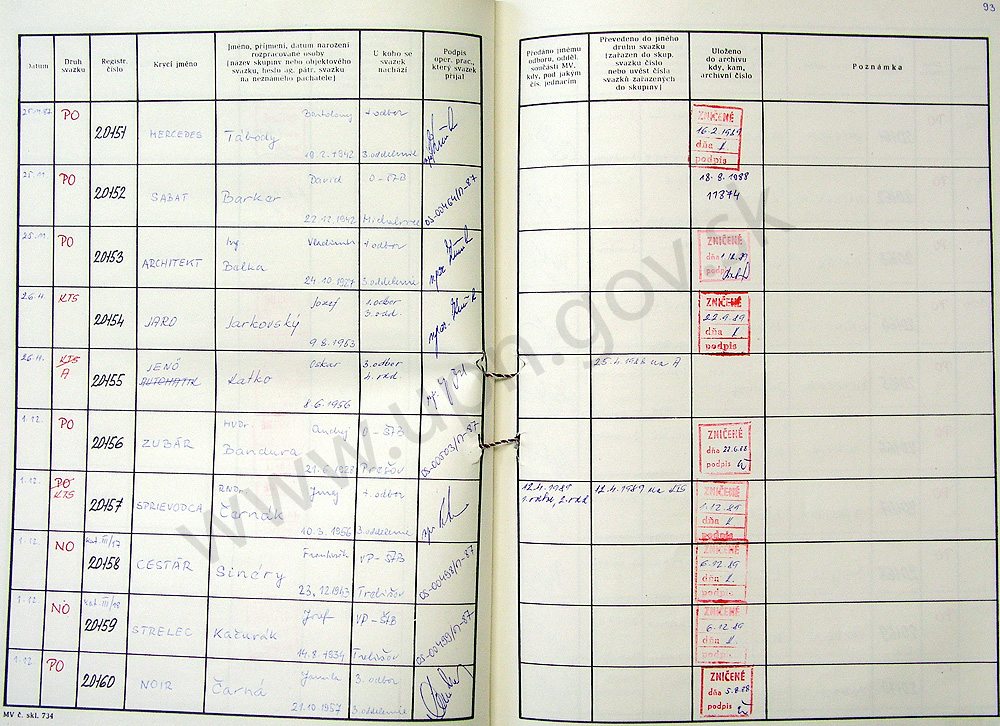 93
Datum
Druh svazku
Registr. číslo
Krycí jméno
Jméno, příjmení, datum narození
rozpracované osoby
(název skupiny nebo objektového
svazku, heslo ag. pátr. svazku
na neznámého pachatele)
U koho se
svazek
nachází
Podpis
oper. prac.,
který svazek
přijal
Předáno jinému
odboru, odděl.
součásti MV,
kdy, pod jakým
čís. jednacím
Převedeno do jiného
druhu svazku
(zařazen do skup.
svazku číslo
nebo uvést čísla
svazků zařazených
do skupiny)
Uloženo
do archivu
kdy, kam,
archivní číslo
Poznámka
PO 20151 MERCEDES Tábody 19.2.1942 1. odbor 3. oddelenie
ZNIČENÉ
16.2.1989
dňa
podpis
25.11. PO 20152 SABAT David Barkar 22.12.1942 O-ŠTB Michalovce OS-00464/N-87
18.8.1988
11374
25.11. PO 20153 ARCHITEKT Ing. Vladimír Balka 24.10.1927 1. odbor 3. oddelenie
ZNIČENÉ
dňa 1.12.89
podpis
26.11. KTS 20154 JARO Jozef Jarkovský 9.8.1953 1. odbor 3. odd.
ZNIČENÉ
22.9.89
dňa
podpis
26.11. KTS A 20155 JENÓ AUTOMATIK Oskar Latko 8.6.1956 3. odbor
25.4.1988 na A
1.12. PO 20156 ZUBÁR MUDr. Andrej Bandura 21.6.1928 O-ŠTB Prešov OS-00503/N-87
ZNIČENÉ
dňa 22.6.88
podpis
1.12. PO KTS 20157 SPRIEVODCA RNDr. Juraj Černák 10.3.1956 1. odbor 3. oddelenie
12.4.1989
12.4.1989 na KTS
ZNIČENÉ
1.12.89
dňa
podpis
1.12. NO kat. III/17 20158 CESTÁR František Sinéry 23.12.1943 VP-ŠTB Trebišov OS-00498/N-87
ZNIČENÉ
6.12.89
dňa
podpis
1.12. NO kat. III/18 20159 STRELEC Jozef Kačurák 14.8.1934 VP-ŠTB Trebišov OS-00499/N-87
ZNIČENÉ
6.12.89
dňa
podpis
1.12. PO 20160 NOIR Jamila Čarná 21.10.1957 3. odbor 3. oddelenie
ZNIČENÉ
dňa 5.8.88
podpis
MV č. skl. 734
www.upn.gov.sk